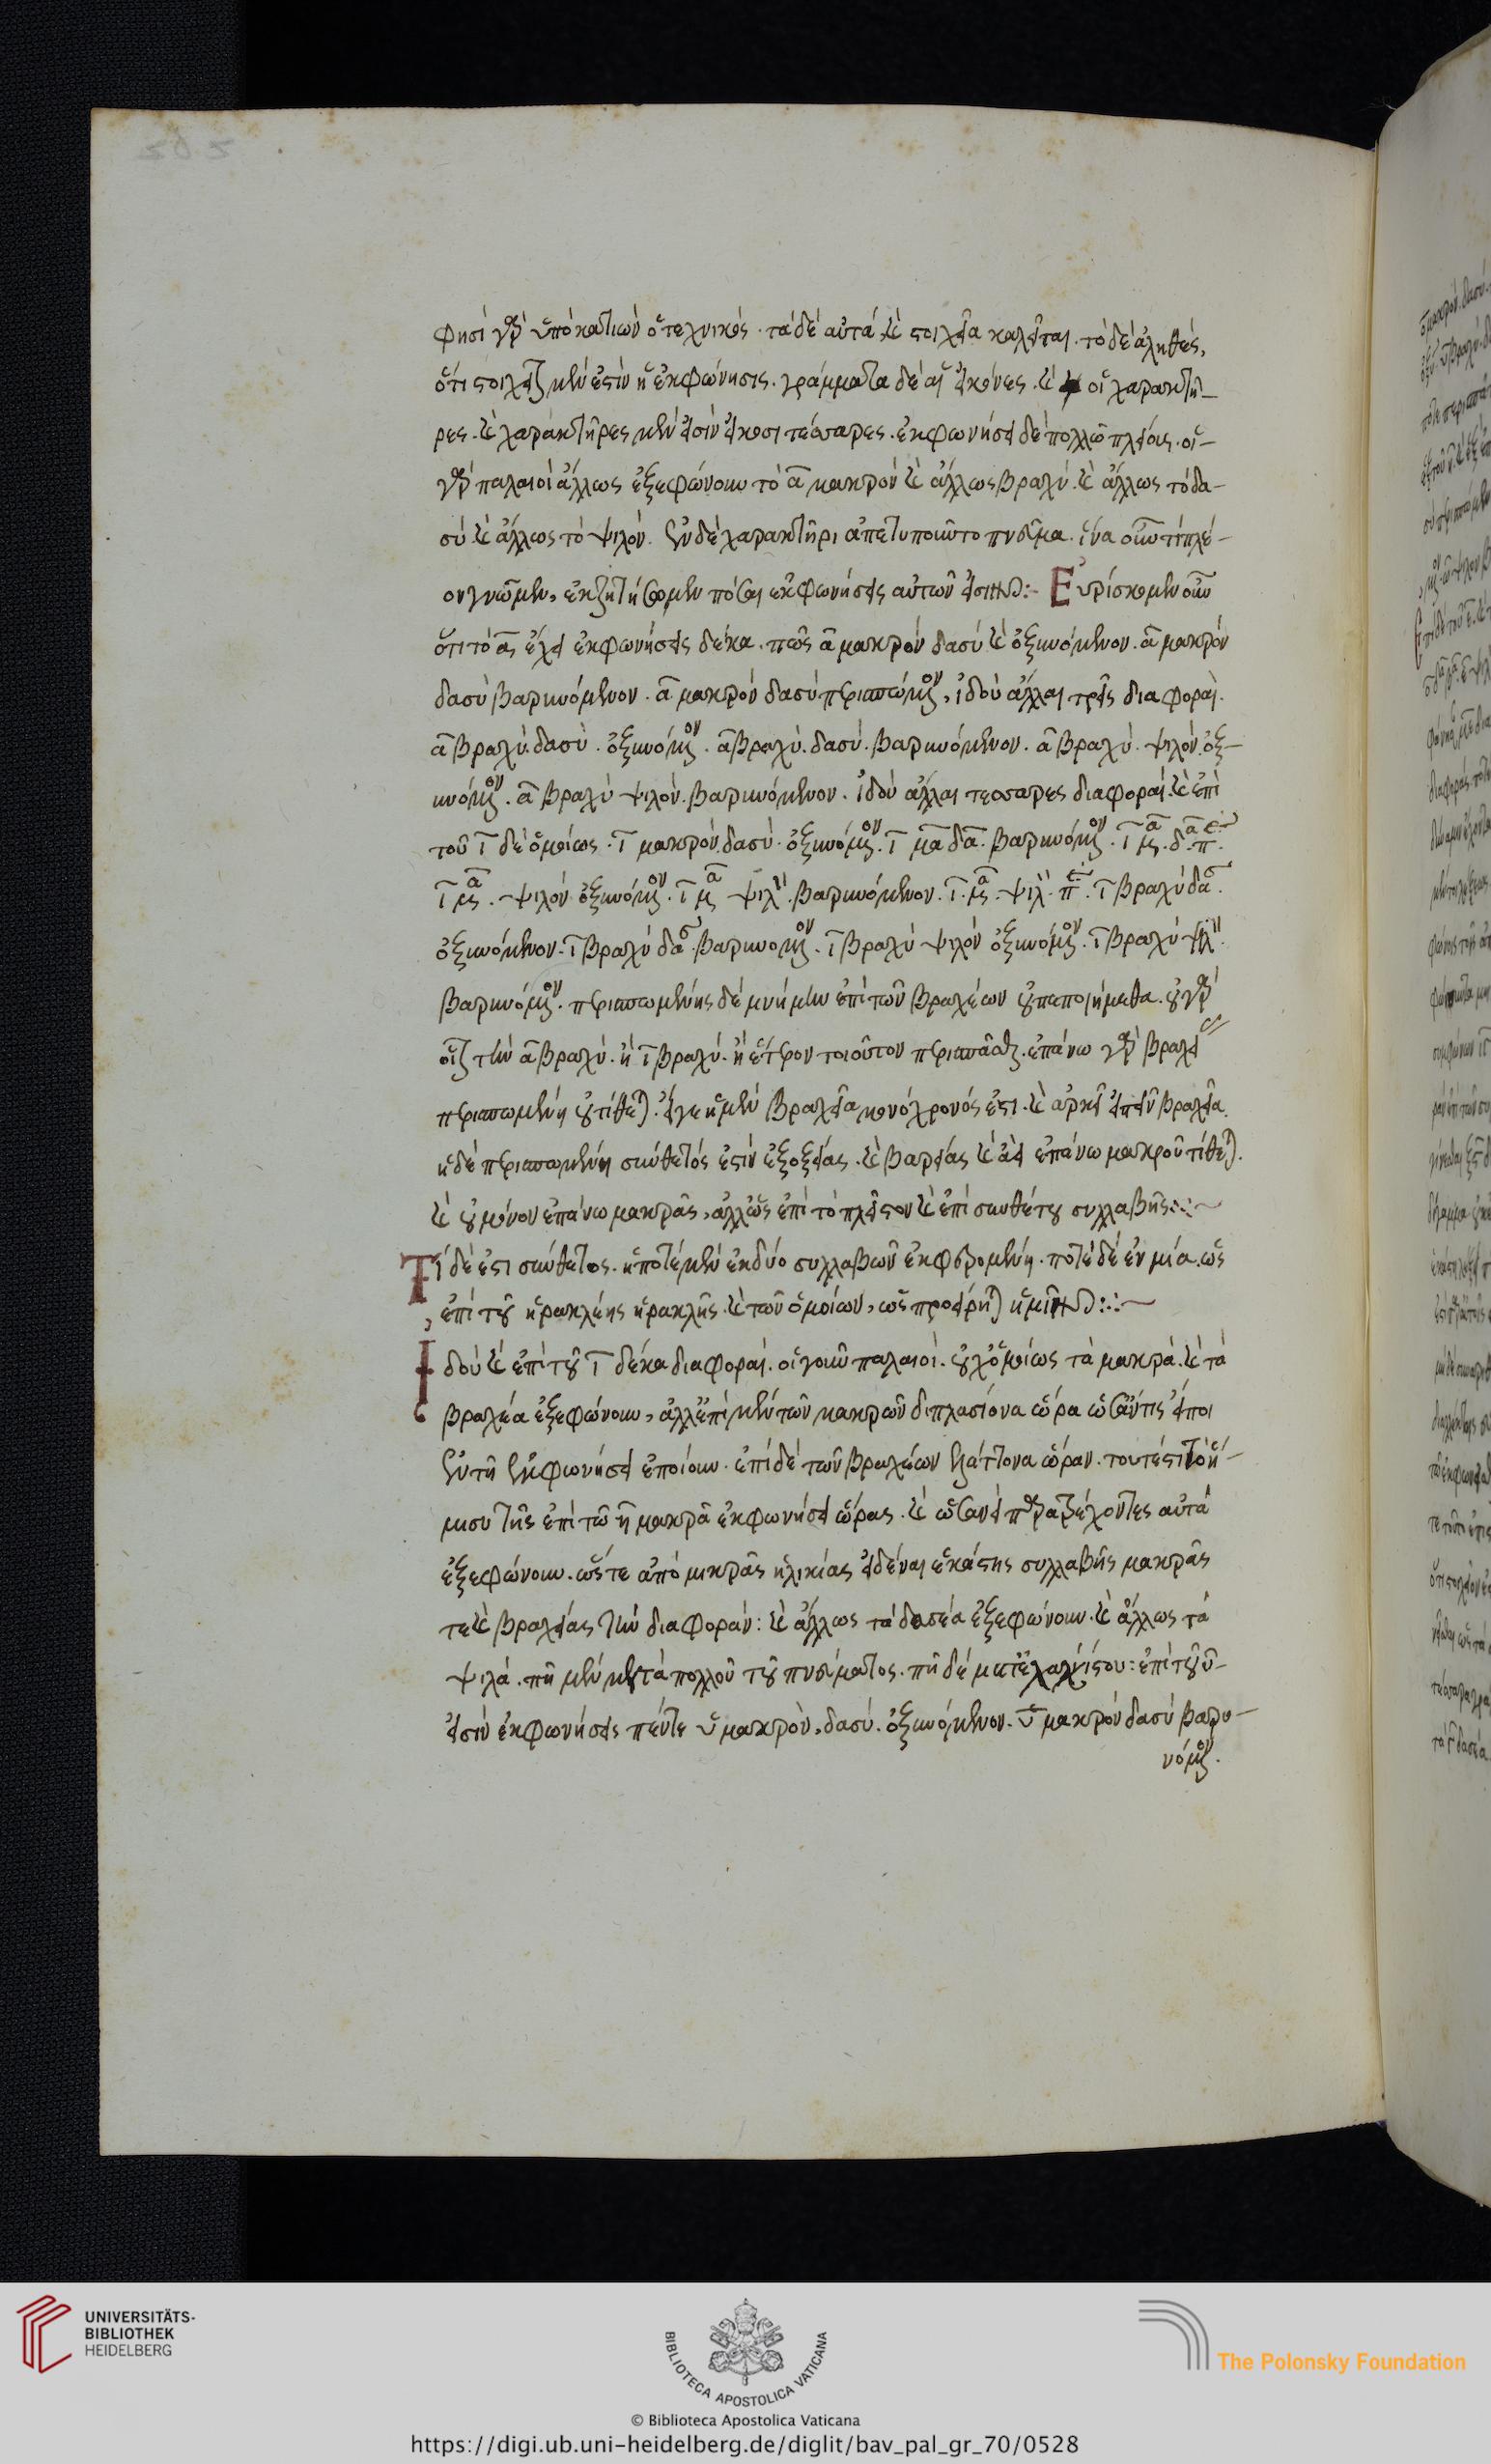 φησὶ γὰρ ὑποκατιὼν ὁ τεχνικός. τὰ δὲ αὐτὰ καὶ στοιχεῖα καλεῖται. τὸ δὲ ἀληθὲς,
ὅτι στοιχεῖον μὲν ἐστὶν ἡ ἐκφώνησις. γράμματα δὲ αἱ εἰκόνες. καὶ οἱ χαρακτῆ-
ρες. καὶ χαράκτῆρες μὲν εἰσὶν εἴκοσι τέσσαρες. ἐκφωνήσει δὲ πολλῶ πλείους. οἱ-
γὰρ παλαιοὶ ἄλλως ἐξεφώνουν τὸ α μακρὸν καὶ ἄλλως βραχύ. καὶ ἄλλως τὸ δα-
σὺ καὶ ἄλλως τὸ ψιλόν. ἓν δὲ χαρακτῆρι ἀπετυποῦντο πνεῦμα. ἵνα οὖν τί πλέ-
ον γνῶμεν, ἐκζητήσωμεν πόσαι ἐκφωνήσεις αὐτῶν εἰσιν:- Εὑρίσκομεν οὖν
ὅτι τὸ α ἔχει ἐκφωνήσεις δέκα. πῶς α μακρὸν δασὺ καὶ ὀξυνόμενον. α μακρὸν
δασὺ βαρυνόμενον. α μακρὸν δασὺ περισπώμενον, ἰδοὺ ἄλλαι τρεῖς διαφοραὶ.
α βραχὺ. δασὺ. ὀξυνόμενον. α βραχὺ. δασὺ. βαρυνόμενον. α βραχὺ. ψιλὸν. ὀξ-
υνόμενον. α βραχὺ ψιλὸν. βαρυνόμενον. ἰδοὺ ἄλλαι τεσσαρες διαφοραί. καὶ ἐπὶ
τοῦ ι δὲ ὁμοίως. ι μακρὸν. δασὺ. ὀξυνόμενον. ι μα δα. βαρυνόμενον. ι μα. δα. πε.
ι μα. ψιλὸν ὀξυνόμενον. ι μα ψιλὺ. βαρυνόμενον. ι. μα. ψιλ. πε. ι βραχὺ δασ.
ὀξυνόμενον. ι βραχὺ δασ. βαρυνομενον. ι βραχὺ ψιλὸν ὀξυνόμενον. ι βραχὺ ψιλ.
βαρυνόμενον. περισπωμένης δὲ μνήμην ἐπὶ τῶν βραχέων οὐ πεποιήμεθα. οὐ γὰρ
οἷόν τ' ἦν α βραχὺ. ἢ ι βραχὺ. ἢ ἕτερον τοιοῦτον περισπᾶσθαι. ἐπάνω γὰρ βραχείας
περισπωμένη οὐ τίθεται. εἴγε ἡ μὲν βραχεῖα μονόχρονός ἐστι. καὶ ἀρκεῖ εἰπεῖν βραχεῖα.
ἡ δὲ περισπωμένη σύνθετός ἐστὶν ἐξ ὀξείας. καὶ βαρείας καὶ ἀεὶ ἐπάνω μακροῦ τίθεται.
καὶ οὐ μόνον ἐπάνω μακρᾶς, ἀλλ' ὡς ἐπὶ τὸ πλεῖστον καὶ ἐπὶ συνθέτου συλλαβῆς:~
Τί δέ ἐστι σύνθετος. ἡ ποτὲ μὲν ἐκ δύο συλλαβῶν ἐκφερομένη. ποτὲ δὲ ἐν μία. ὡς
ἐπὶ τοῦ ἡρακλέης ἡρακλῆς. καὶ τῶν ὁμοίων, ὡς προείρηται ἡμῖν:~
Ἰδοὺ καὶ ἐπὶ τοῦ ι δέκα διαφοραί. οἱ γοῦν παλαιοὶ. οὐχ ὁμοίως τὰ μακρὰ. καὶ τὰ
βραχέα ἐξεφώνουν, ἀλλ' ἐπὶ μὲν τῶν μακρῶν διπλασίονα ὥρα ὡσάν τις εἴποι
ἐν τῆ ἐκφωνήσει ἐποίουν. ἐπὶ δὲ τῶν βραχέων ἐλάττονα ὥραν. τουτέστι τὸ ἥ-
μισυ τῆς ἐπὶ τῶ η μακρᾶ ἐκφωνήσει ὥρας. καὶ ὡσανεὶ παρατρέχοντες αὐτὰ
ἐξεφώνουν. ὥστε ἀπὸ μικρᾶς ἡλικίας εἰδέναι ἑκάστης συλλαβῆς μακρᾶς
τε καὶ βραχείας τὴν διαφοράν: καὶ ἄλλως τὰ δασέα ἐξεφώνουν. καὶ ἄλλως τὰ
ψιλά. πῆ μὲν μετὰ πολλοῦ τοῦ πνεύματος. πῆ δὲ μετ' ἐλαχίστου: ἐπὶ τοῦ υ-
εἰσὶν ἐκφωνήσεις πέντε υ μακρὸν, δασύ. ὀξυνόμενον. υ μακρὸν δασὺ βαρυ-
νόμενον.
UNIVERSITÄTS-
BIBLIOTHEK
HEIDELBERG
BIBLIOTECA APOSTOLICA VATICANA
The Polonsky Foundation
© Biblioteca Apostolica Vaticana
https://digi.ub.uni-heidelberg.de/diglit/bav_pal_gr_70/0528